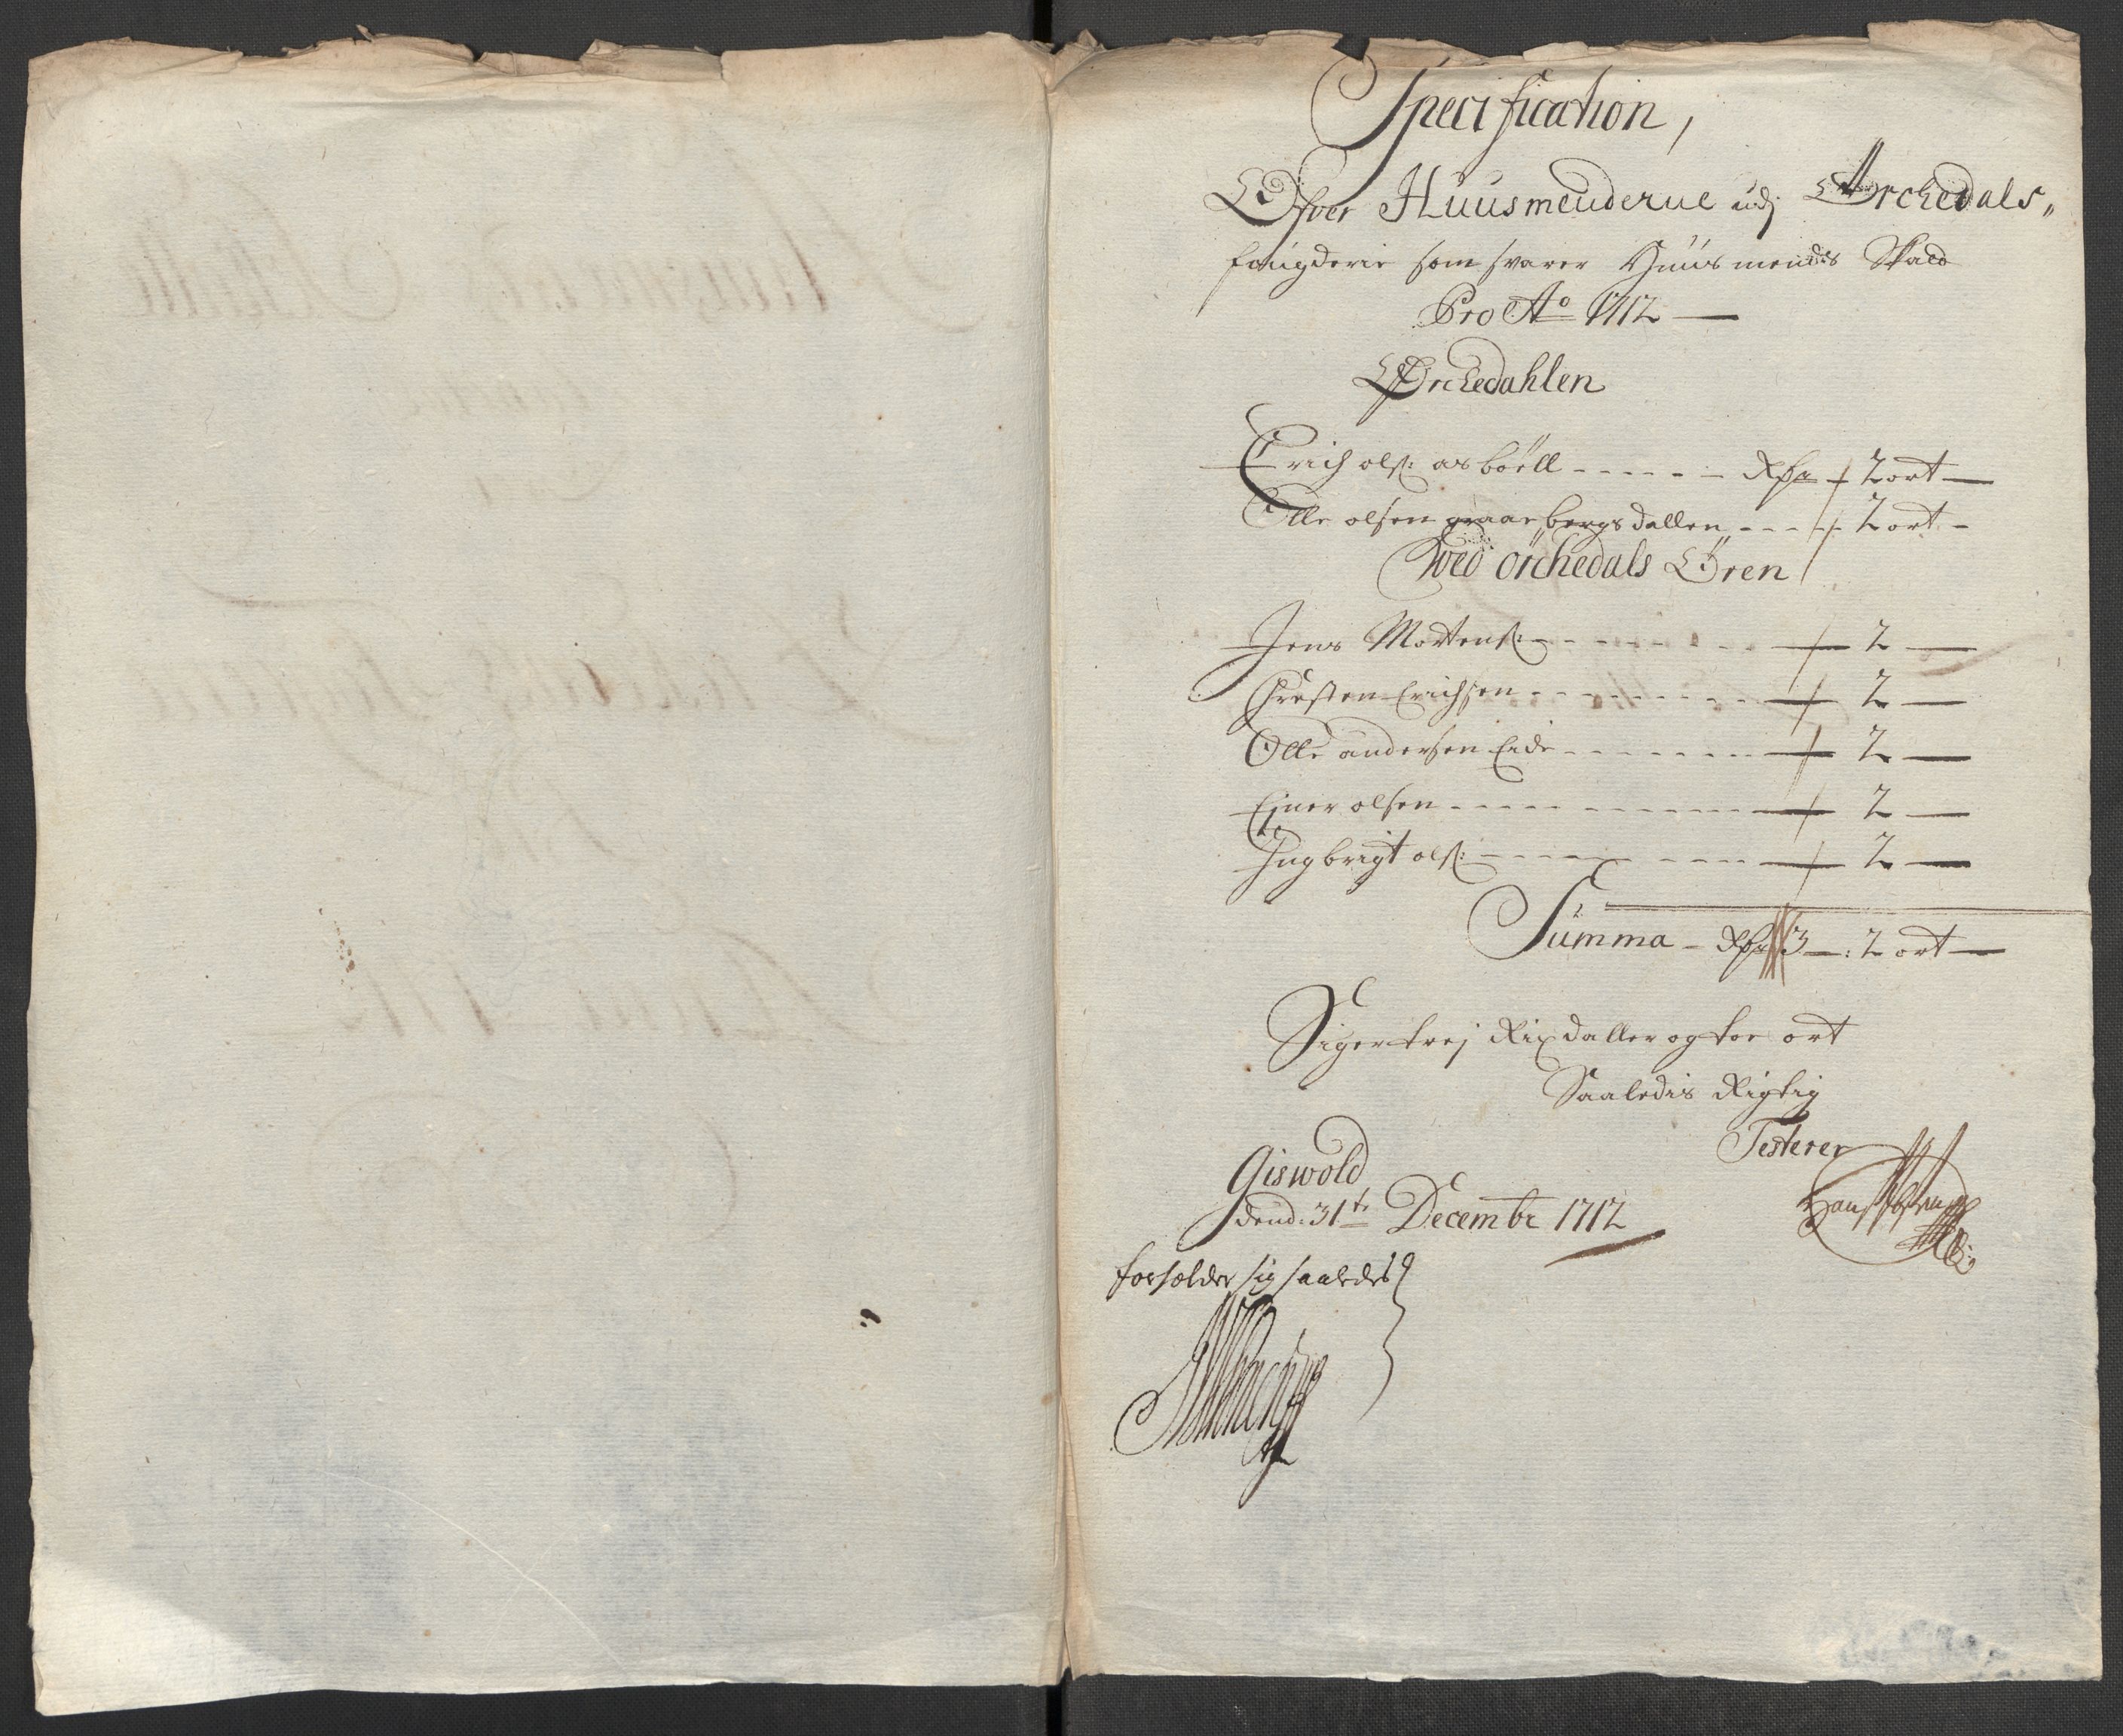 Specification,
Ofver Huusmenderne udj Ørchedals„
fougderie som svarer Huusmends Skatt
Pro Ao 1712
Ørchedahlen
Erich olsß: asböell - - - - - Rdr - 2 ort
Olle olsen graaebergsdallen - - - 2 ort
wed örchedals Øren
Jens Mortensß: - - - - - 2
Christen Erichsen - - - - - 2
Olle andersen Eide - - - - - 2
Ejner olsen - - - - - 2
Ingbrigt olsß: - - - - - 2
Summa - Rdr 3 : 2 ort
Siger trej Rixdaller og toe ort
Saaledis Rigtig
Testerer
Giswold
dend: 31te Decembr 1712
forholder sig saaledes